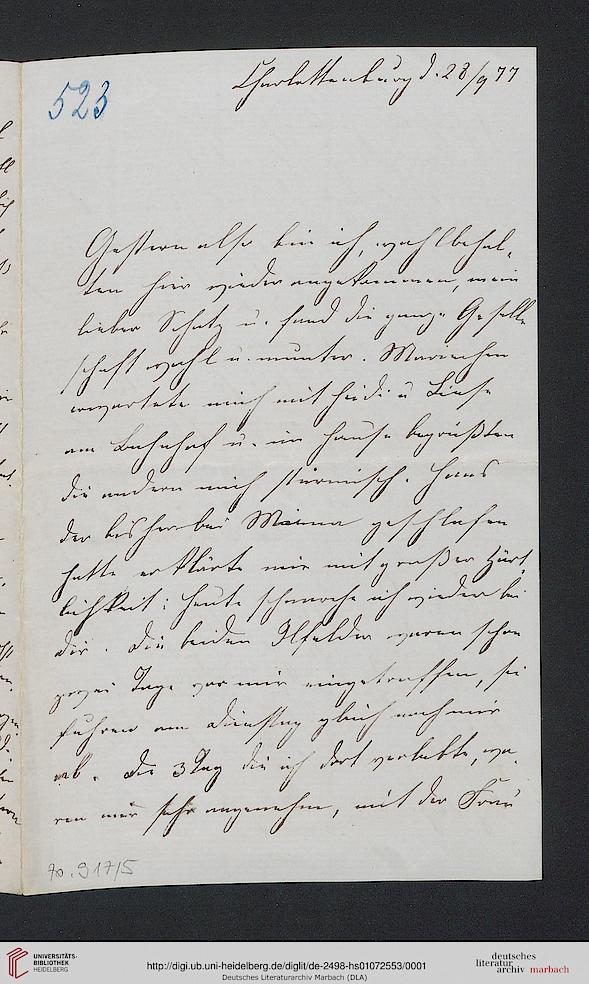 523
Charlottenburg d. 28/9 77
Gestern also bin ich, wohlbehal-
ten hier wieder angekommen, mein
lieber Schatz u. fand die ganze Gesell-
schaft wohl u. munter. Mariechen
erwartete mich mit Heidi u Liese
am Bahnhof u. im Hause begrüßten
die andern mich stürmisch. Hans
der bisher bei Minna geschlafen
hatte erklärte mir mit großer Zärt-
lichkeit: heute schnarche ich wieder bei
dir. Die beiden Ilfelder waren schon
zwei Tage vor mir eingetroffen, sie
fuhren am Dienstag gleich nach mir
ab. Die 3 Tag die ich dort verlebte, wa-
ren mir sehr angenehm, mit der Frau
70.917/5
UNIVERSITÄTS-
BIBLIOTHEK
HEIDELBERG
http://digi.ub.uni-heidelberg.de/diglit/de-2498-hs01072553/0001
Deutsches Literaturarchiv Marbach (DLA)
deutsches
literatur
archiv marbach